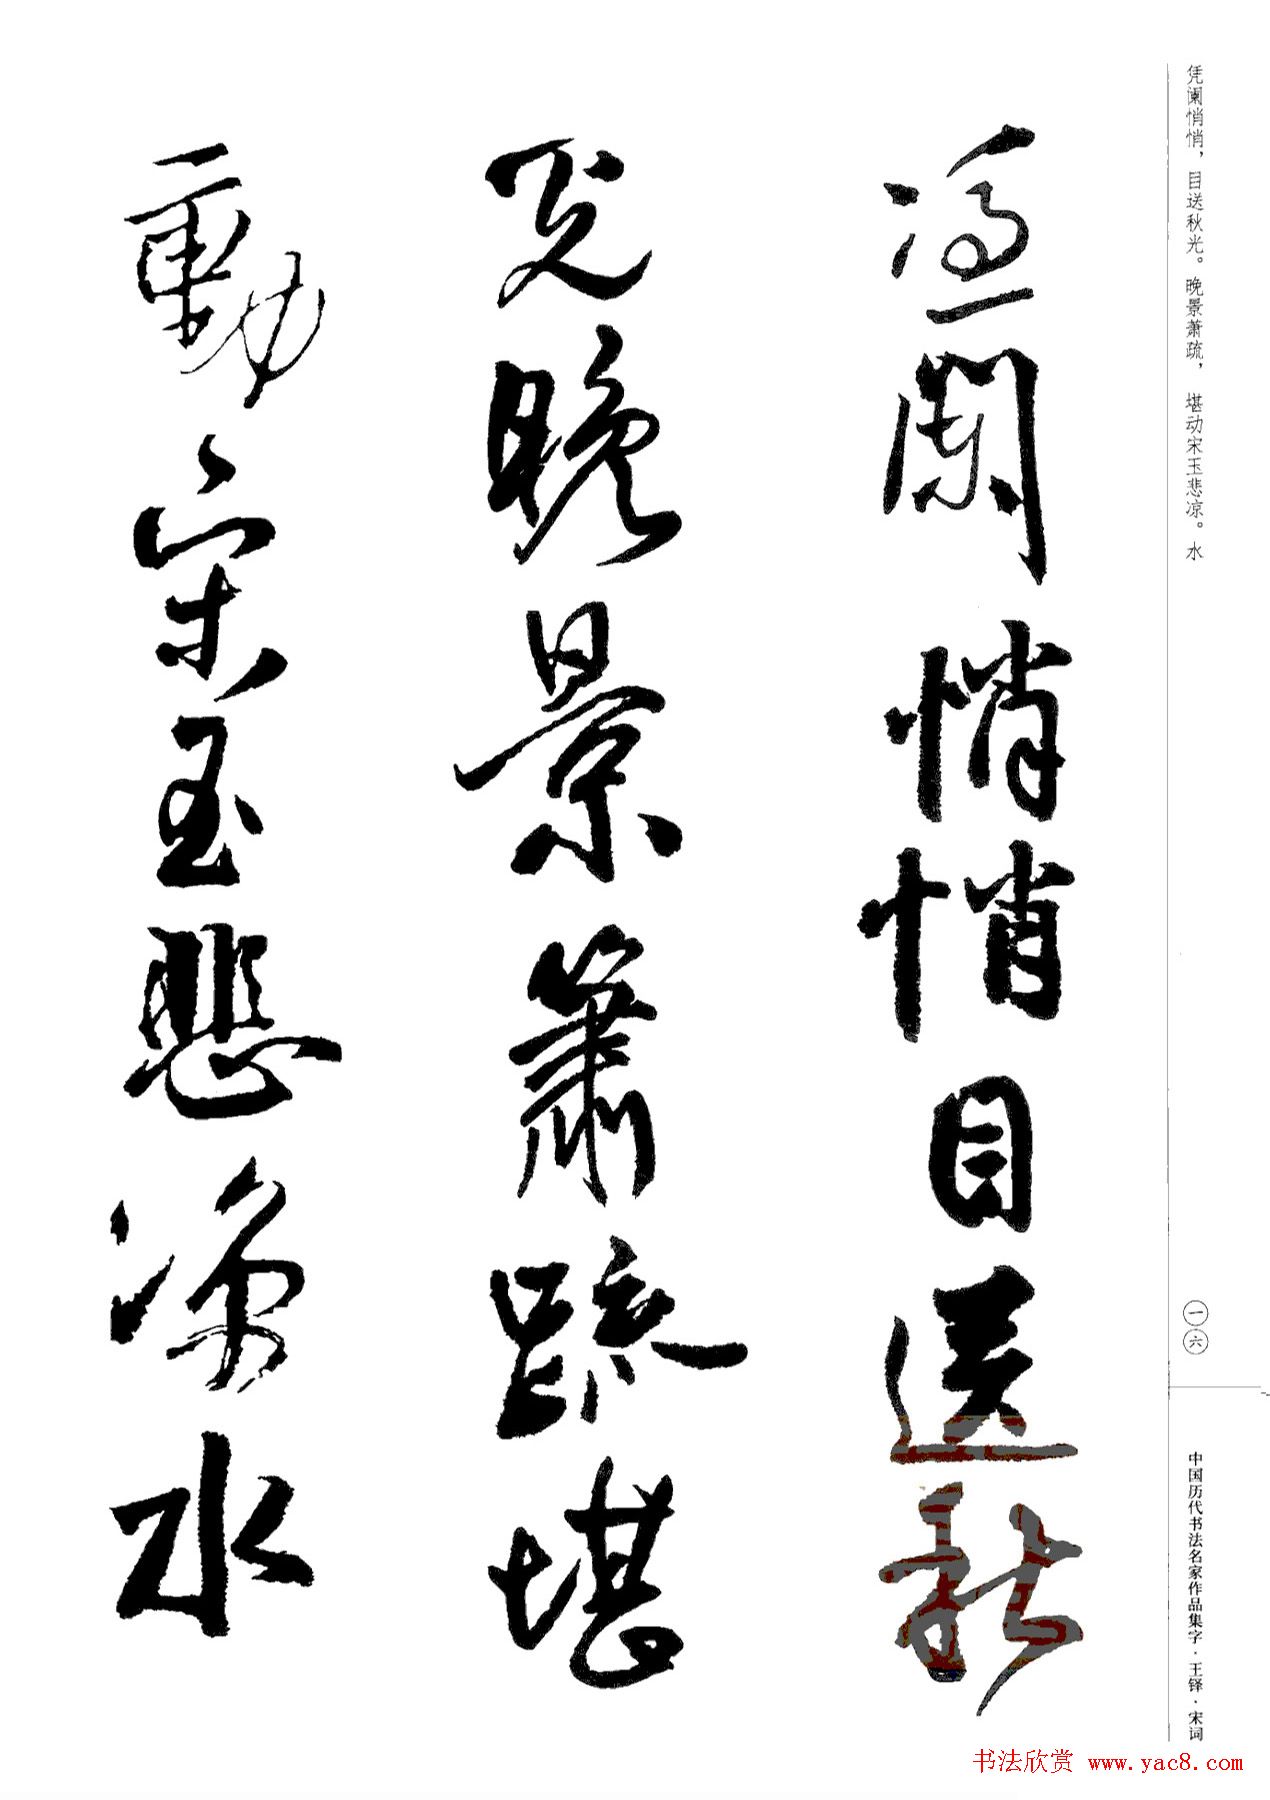 凭阑悄悄，目送秋光。晚景萧疏，堪动宋玉悲凉。水
憑闌悄悄目送秋
光晚景簫疏堪
動宋玉悲涼水
一六
中国历代书法名家作品集字·王铎·宋词
书法欣赏 www.yac8.com